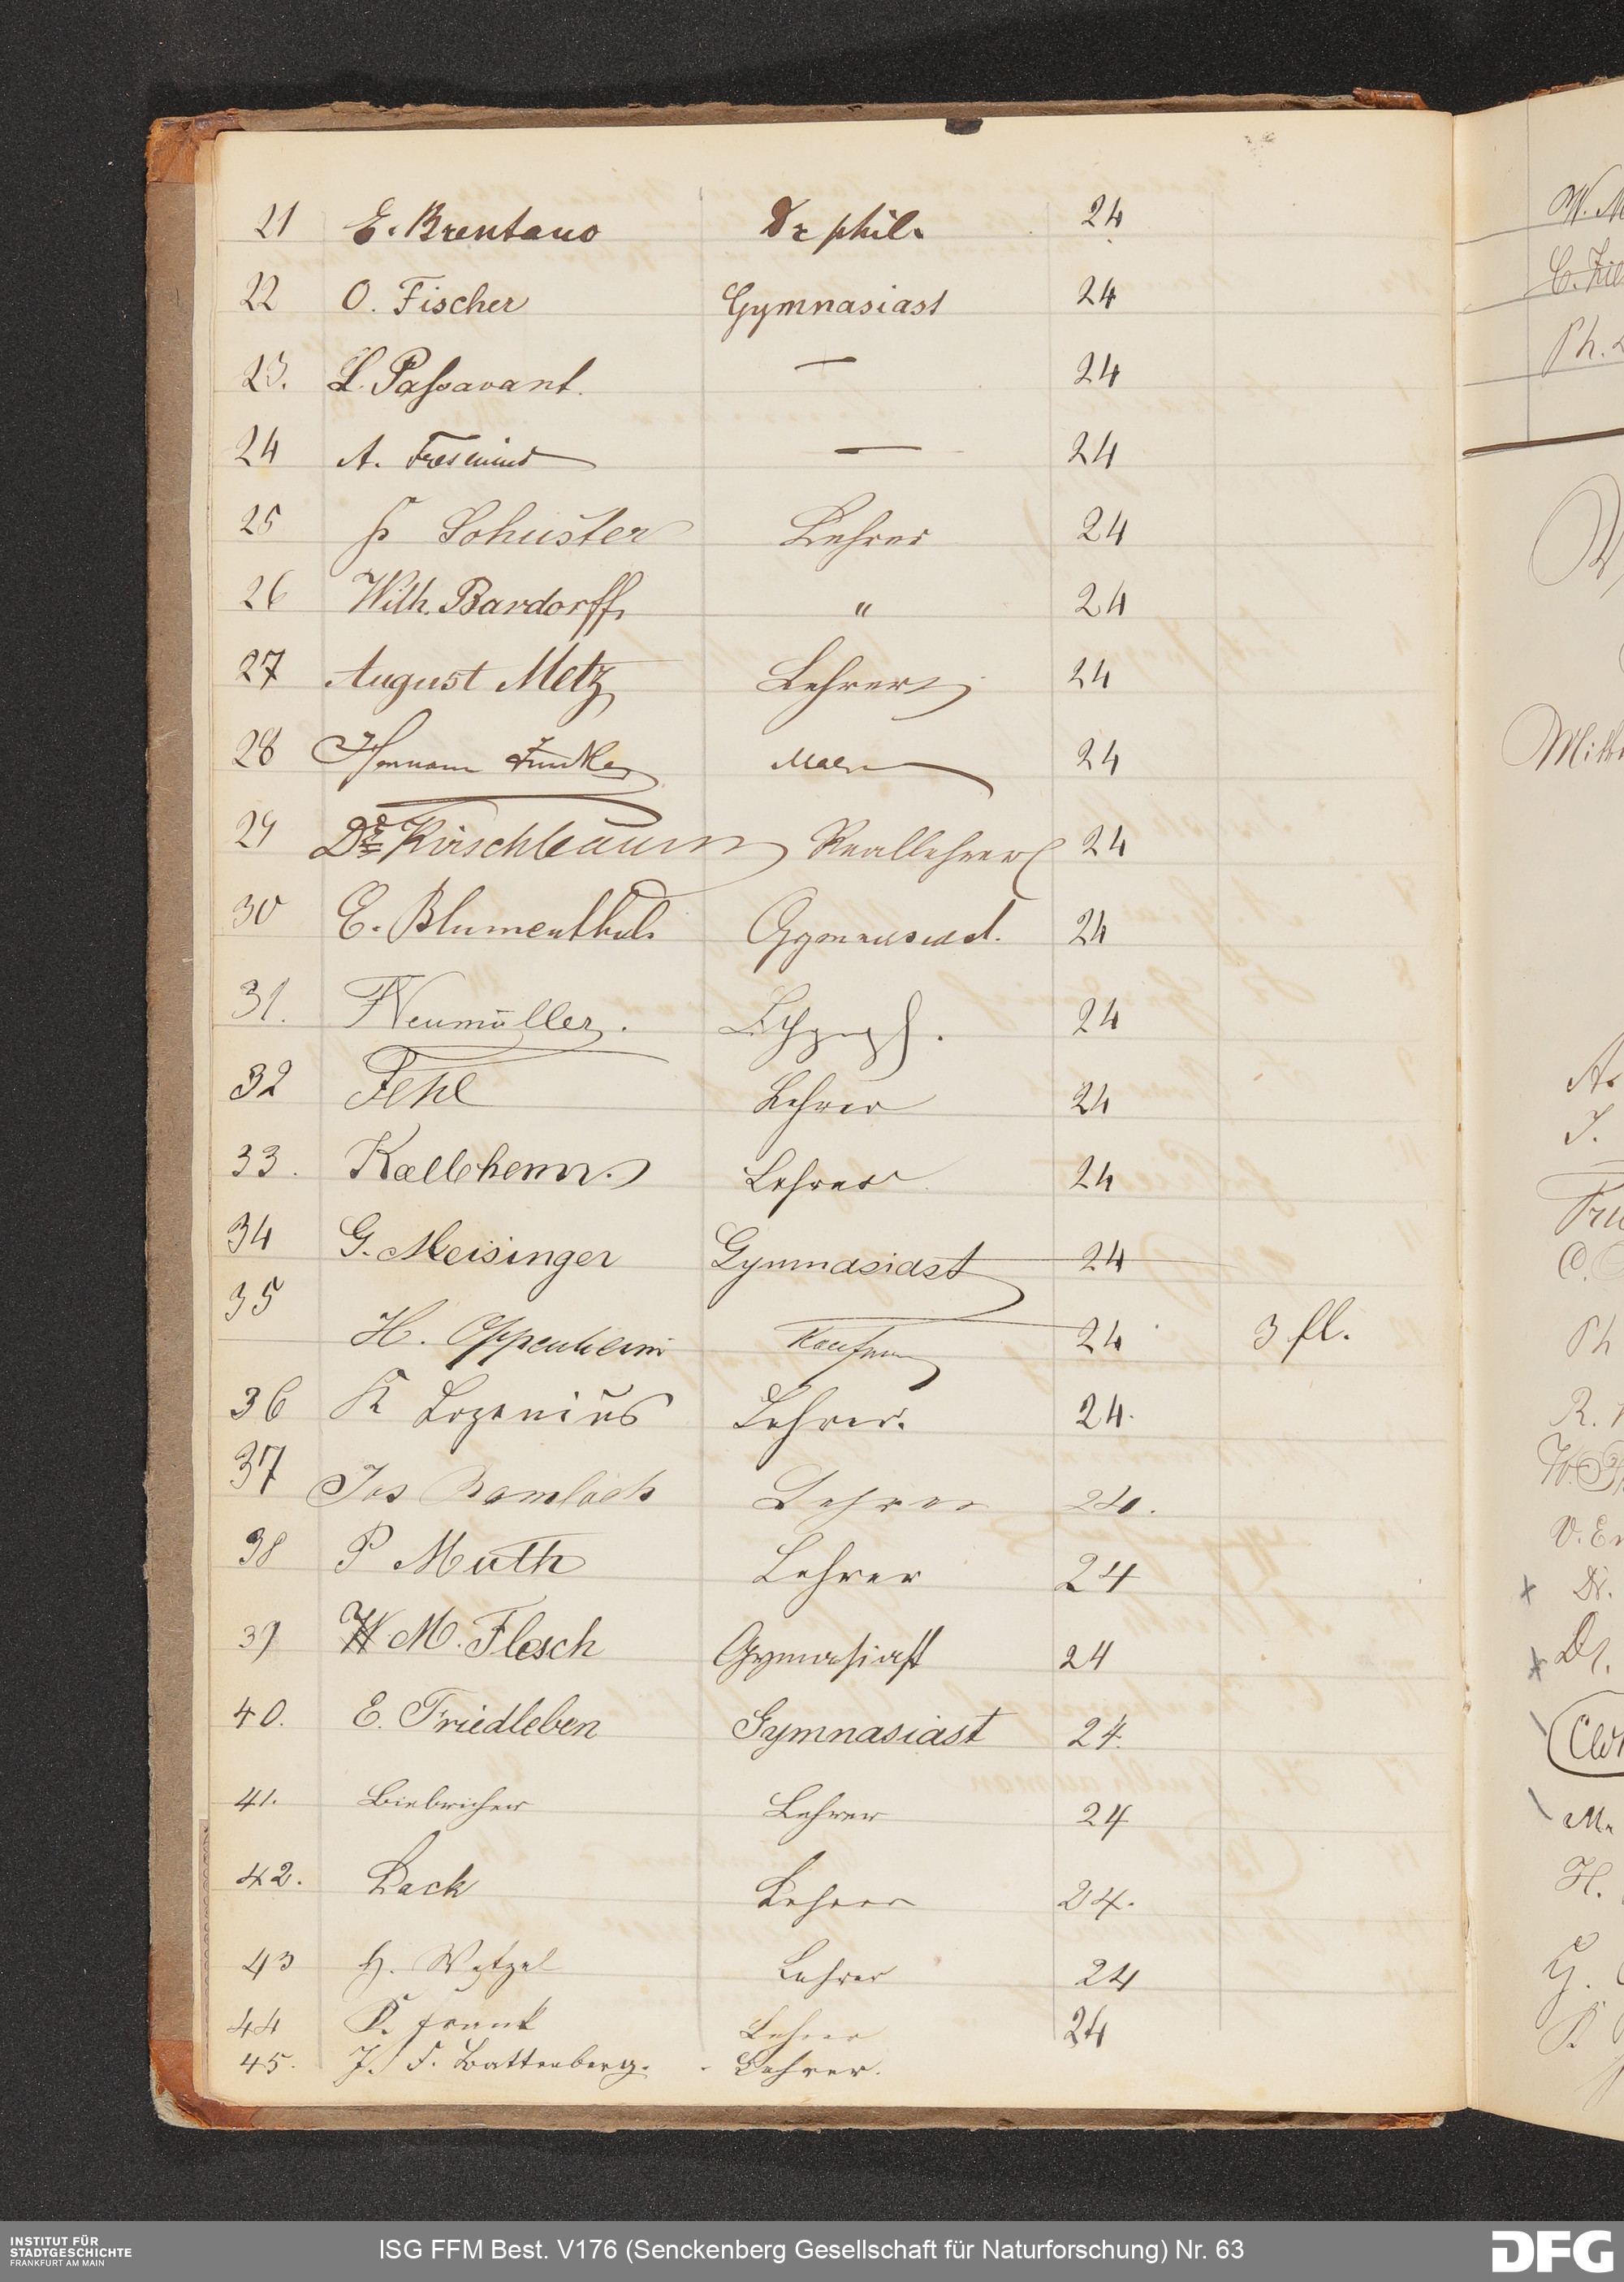 21 E. Brentano Dr phil. 24
22 O. Fischer Gymnasiast 24
23. L. Passavant. — 24
24 A. Fresenius — 24
25 Schuster Lehrer 24
26 Wilh. Bardorff " 24
27 August Metz Lehrer 24
28 Hermann Junker Maler 24
29 Dr Kirschbaum Reallehrer 24
30 E. Blumenthal. Gymnasiast. 24
31. F Neumüller. 24
32 Fehl Lehrer 24
33. Kællehenn. Lehrer 24
34 G. Meisinger Gymnasiast 24
35 H. Oppenheim Kaufmann 24 3 fl.
36 K Lozenius Lehrer. 24.
37 Jos Lehrer 24.
38 P Muth Lehrer 24
39 M. Flesch Gymnasiast 24
40. E. Friedleben Gymnasiast 24.
41. Biebricher Lehrer 24
42. Lack Lehrer 24.
43 H. Wetzel Lehrer 24
44 K. Frank Lehrer 24
45. J. F. Battenberg. Lehrer.
W. M
Ph.
A.
J.
Ph
R.
V. E
Dr.
Dr.
M.
H.
INSTITUT FÜR
STADTGESCHICHTE
FRANKFURT AM MAIN
ISG FFM Best. V176 (Senckenberg Gesellschaft für Naturforschung) Nr. 63
DFG